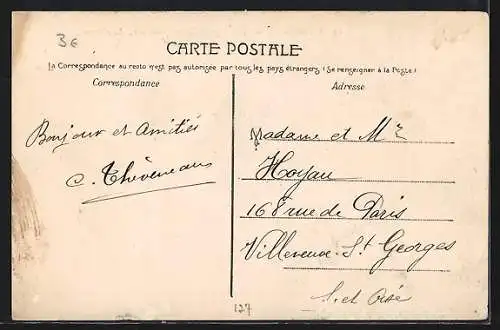 3 G
CARTE POSTALE
La Correspondance au resto n'est pas autorisée par tous les pays étrangers (Se renseigner à la Poste)
Correspondance
Adresse
Bonjour et Amitiés
C. Thèveneaux
Madame et Mr
Hoyau
168 rue de Paris
Villeneuve-St Georges
S. et Oise
127